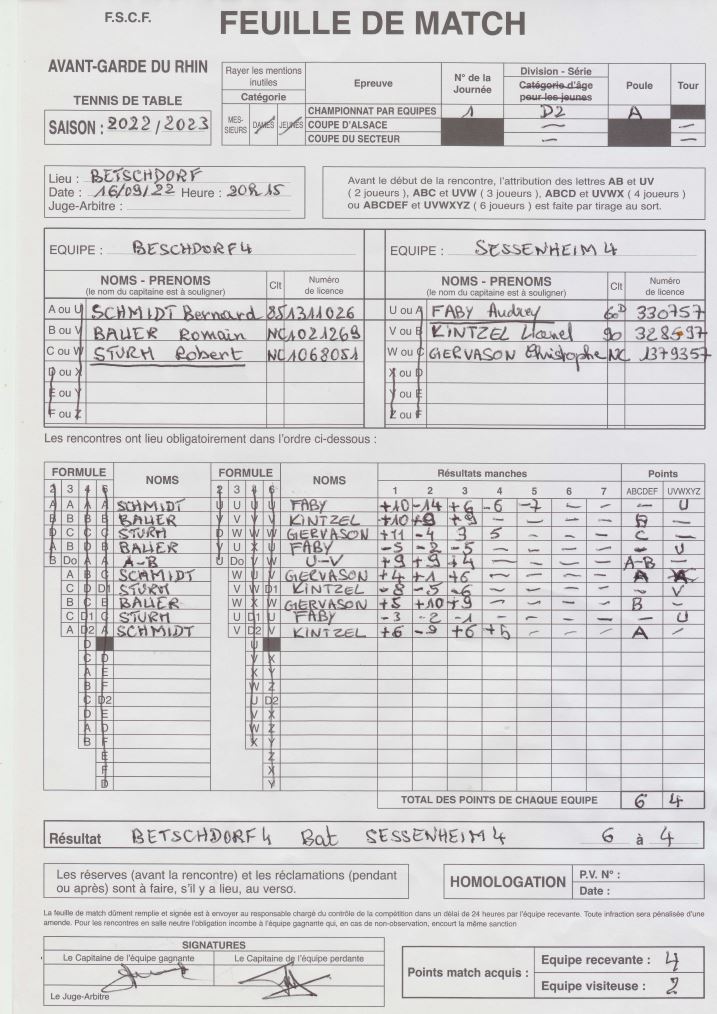 F.S.C.F. FEUILLE DE MATCH
AVANT-GARDE DU RHIN
TENNIS DE TABLE
SAISON : 2022/2023
Rayer les mentions inutiles
Catégorie
MES-SIEURS DAMES JEUNES
Epreuve N° de la Journée Division - Série Catégorie d'âge pour les jeunes Poule Tour
CHAMPIONNAT PAR EQUIPES 1 D2 A
COUPE D'ALSACE — —
COUPE DU SECTEUR — —
Lieu : BETSCHDORF
Date : 16/09/22 Heure : 20h15
Juge-Arbitre :
Avant le début de la rencontre, l'attribution des lettres AB et UV
( 2 joueurs ), ABC et UVW ( 3 joueurs ), ABCD et UVWX ( 4 joueurs )
ou ABCDEF et UVWXYZ ( 6 joueurs ) est faite par tirage au sort.
EQUIPE : BESCHDORF 4 EQUIPE : SESSENHEIM 4
NOMS - PRENOMS (le nom du capitaine est à souligner) Clt Numéro de licence NOMS - PRENOMS (le nom du capitaine est à souligner) Clt Numéro de licence
A ou U SCHMIDT Bernard 85 1311026 U ou A FABY Audrey 60D 330757
B ou V BAUER Romain NC 1021269 V ou B KINTZEL Lionel 90 328597
C ou W STURM Robert NC 1068051 W ou C GERVASON Christophe NC 1379357
D ou X X ou D
E ou Y Y ou E
F ou Z Z ou F
Les rencontres ont lieu obligatoirement dans l'ordre ci-dessous :
FORMULE NOMS FORMULE NOMS Résultats manches Points
2 3 4 6 2 3 4 6 1 2 3 4 5 6 7 ABCDEF UVWXYZ
A A A A SCHMIDT U U U U FABY +10 -14 +6 -6 -7 — — — U
B B B B BAUER V V V V KINTZEL +10 +9 +9 — — — — B —
D C C C STURM D W W W GERVASON +11 -4 3 5 — — — C —
A B D B BAUER V U X U FABY -5 -2 -5 — — — — — U
B Do A A A-B U Do V W U-V +9 +9 +4 — — — — A-B —
A B C SCHMIDT W U V GERVASON +4 +1 +6 — — — — A
C D D1 STURM V W D1 KINTZEL -8 -5 -6 — — — — — V
B C E BAUER W X W GERVASON +5 +10 +9 — — — — B —
C D1 C STURM U D1 U FABY -3 -2 -1 — — — — — U
A D2 A SCHMIDT V D2 V KINTZEL +6 -9 +6 +5 — — — A —
D U
C D V X
A E X Y
B F W Z
C D2 U D2
D E V X
A D W Z
B F X Y
E X
F Z
E X
D Y
TOTAL DES POINTS DE CHAQUE EQUIPE 6 4
Résultat BETSCHDORF 4 Bat SESSENHEIM 4 6 à 4
Les réserves (avant la rencontre) et les réclamations (pendant
ou après) sont à faire, s'il y a lieu, au verso.
HOMOLOGATION P.V. N° :
Date :
La feuille de match dûment remplie et signée est à envoyer au responsable chargé du contrôle de la compétition dans un délai de 24 heures par l'équipe recevante. Toute infraction sera pénalisée d'une
amende. Pour les rencontres en salle neutre l'obligation incombe à l'équipe gagnante qui, en cas de non-observation, encourt la même sanction
SIGNATURES
Le Capitaine de l'équipe gagnante Le Capitaine de l'équipe perdante
Le Juge-Arbitre
Points match acquis : Equipe recevante : 4
Equipe visiteuse : 2